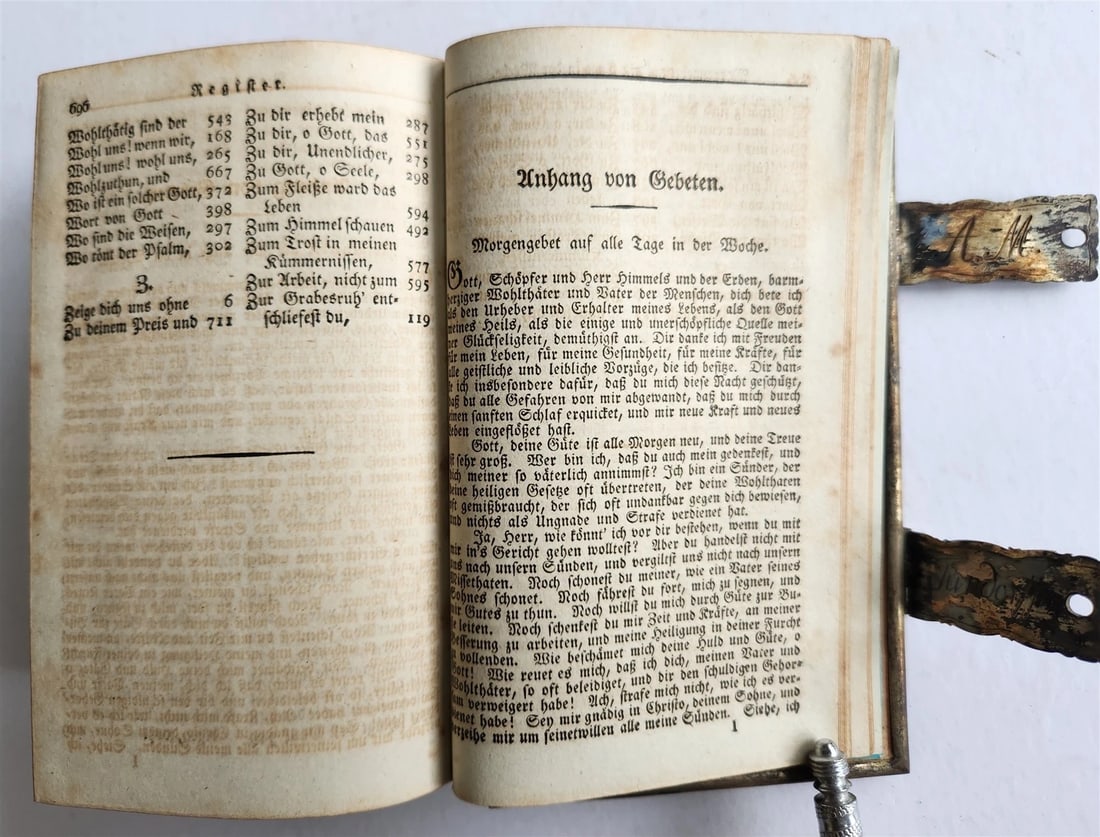 696
Register.
Wohlthätig sind der 543
Wohl uns! wenn wir, 168
Wohl uns! wohl uns, 265
Wohlzuthun, und 667
Wo ist ein solcher Gott, 372
Wort von Gott 398
Wo sind die Weisen, 297
Wo tönt der Psalm, 302
Z.
Zeige dich uns ohne 6
Zu deinem Preis und 711
Zu dir erhebt mein 287
Zu dir, o Gott, das 551
Zu dir, Unendlicher, 275
Zu Gott, o Seele, 298
Zum Fleiße ward das
Leben 594
Zum Himmel schauen 492
Zum Trost in meinen
Kümmernissen, 577
Zur Arbeit, nicht zum 595
Zur Grabesruh' ent-
schliefest du, 119
Anhang von Gebeten.
Morgengebet auf alle Tage in der Woche.
Gott, Schöpfer und Herr Himmels und der Erden, barm-
herziger Wohlthäter und Vater der Menschen, dich bete ich
als den Urheber und Erhalter meines Lebens, als den Gott
meines Heils, als die einige und unerschöpfliche Quelle mei-
ner Glückseligkeit, demüthigst an. Dir danke ich mit Freuden
für mein Leben, für meine Gesundheit, für meine Kräfte, für
alle geistliche und leibliche Vorzüge, die ich besitze. Dir dan-
ke ich insbesondere dafür, daß du mich diese Nacht geschützt,
daß du alle Gefahren von mir abgewandt, daß du mich durch
einen sanften Schlaf erquicket, und mir neue Kraft und neues
Leben eingeflößet hast.
Gott, deine Güte ist alle Morgen neu, und deine Treue
ist sehr groß. Wer bin ich, daß du auch mein gedenkest, und
dich meiner so väterlich annimmst? Ich bin ein Sünder, der
deine heiligen Gesetze oft übertreten, der deine Wohlthaten
oft gemißbraucht, der sich oft undankbar gegen dich bewiesen,
und nichts als Ungnade und Strafe verdienet hat.
Ja, Herr, wie könnt' ich vor dir bestehen, wenn du mit
mir in's Gericht gehen wolltest? Aber du handelst nicht mit
uns nach unsern Sünden, und vergiltst uns nicht nach unsern
Missethaten. Noch schonest du meiner, wie ein Vater seines
Sohnes schonet. Noch fährest du fort, mich zu segnen, und
mir Gutes zu thun. Noch willst du mich durch Güte zur Bu-
ße leiten. Noch schenkest du mir Zeit und Kräfte, an meiner
Besserung zu arbeiten, und meine Heiligung in deiner Furcht
zu vollenden. Wie beschämet mich deine Huld und Güte, o
Gott! Wie reuet es mich, daß ich dich, meinen Vater und
Wohlthäter, so oft beleidiget, und dir den schuldigen Gehor-
sam verweigert habe! Ach, strafe mich nicht, wie ich es ver-
dienet habe! Sey mir gnädig in Christo, deinem Sohne, und
verzeihe mir um seinetwillen alle meine Sünden. Siehe, ich
1
A. M.